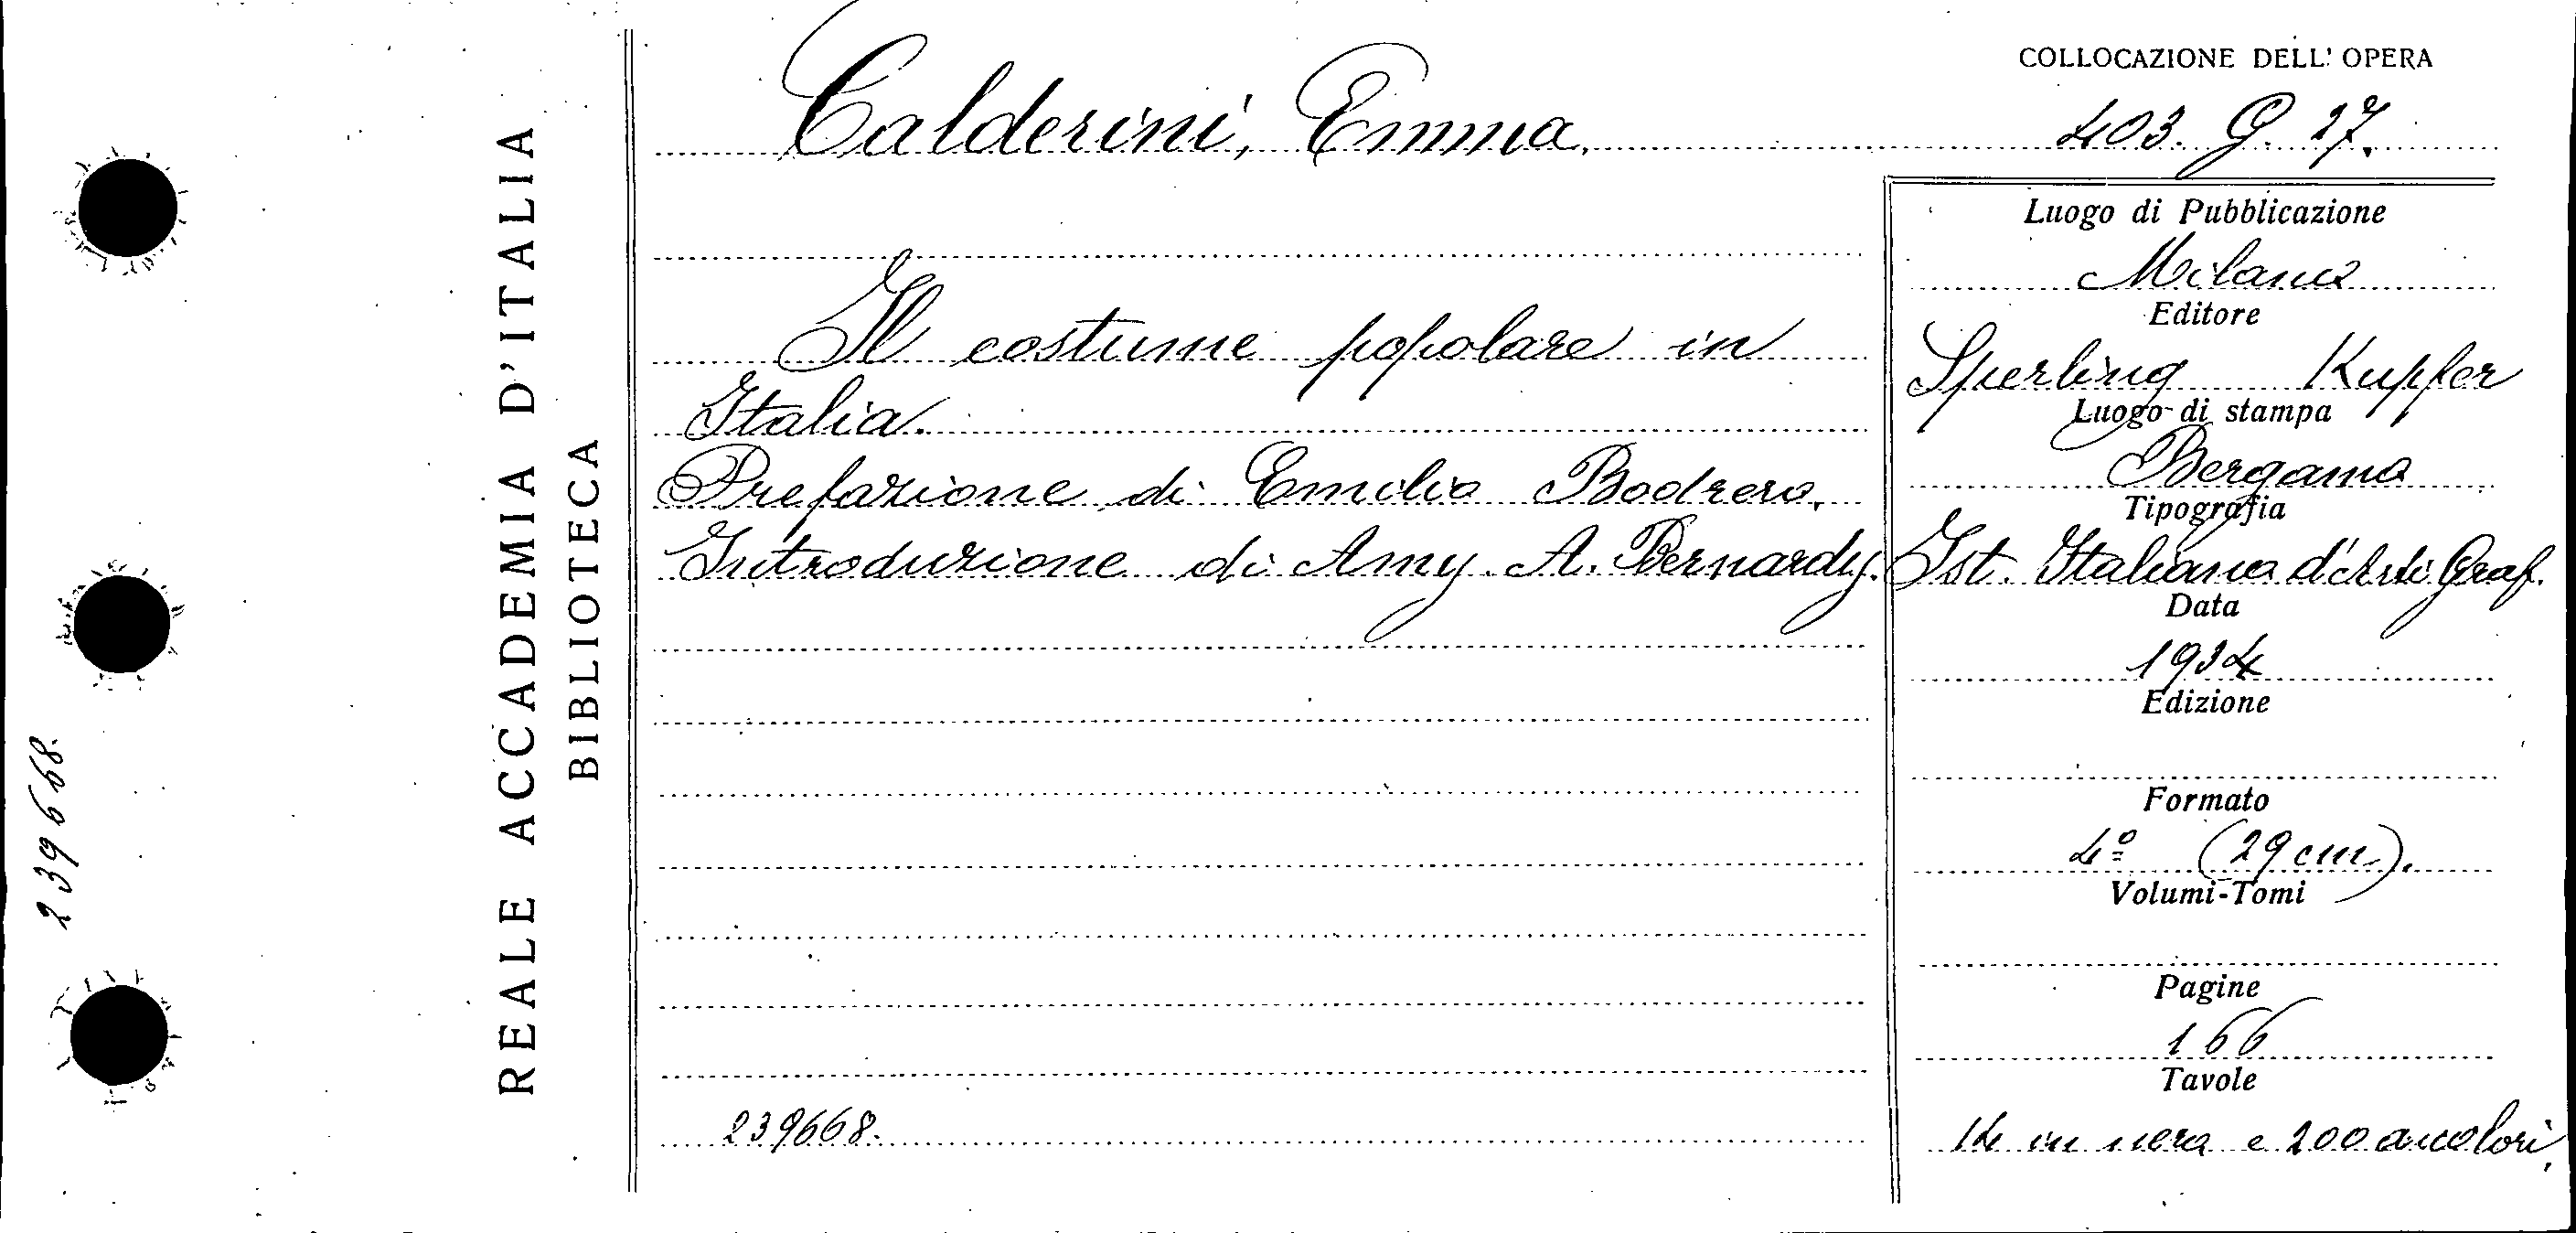 REALE ACCADEMIA D'ITALIA
BIBLIOTECA
239668.
Calderini, Emma.
Il costume popolare in
Italia.
Prefazione di Emilio Bodrero,
Introduzione di Amy. A. Bernardy.
239668.
COLLOCAZIONE DELL'OPERA
403. G. 27.
Luogo di Pubblicazione
Milano
Editore
Sperling Kupfer
Luogo di stampa
Bergamo
Tipografia
Ist. Italiano d'Arti Graf.
Data
1934
Edizione
Formato
4º (29 cm.).
Volumi-Tomi
Pagine
166
Tavole
14 in nero e 200 a colori.